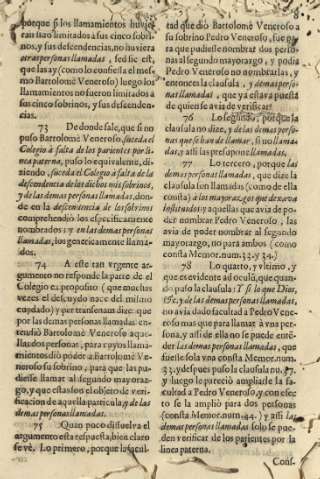 porque si los llamamientos huvie-
ran sido limitados à sus cinco sobri-
nos, y sus descendencias, no huviera
otras personas llamadas, sed sic est,
que las ay (como lo confiesa el mes-
mo Bartolomè Veneroso) luego los
llamamientos no fueron limitados à
sus cinco sobrinos, y sus descenden-
cias.
73 De donde sale, que si no
puso Bartolomè Veneroso, suceda el
Colegio à falta de los parientes por li-
nea paterna, puso lo equivalente, di-
ziendo, suceda el Colegio à falta de la
descendencia de los dichos mis sobrinos,
y de las demas personas llamadas, don-
de en la descendencia de los sobrinos
comprehendiò los especificamente
nombrados: y en las demas personas
llamadas, los genericamente llama-
dos.
74 A este tan urgente ar-
gumento no responde la parte de el
Colegio ex proposito (que muchas
vezes el descuydo nace del mismo
cuydado) y per transenam dize: que
por las demas personas llamadas en-
tendiò Bartolomè Veneroso aque-
llas dos personas, para cuyos llama-
mientos diò poder à Bartolomè Ve-
neroso su sobrino, para que las pu-
diesse llamar al segundo mayoraz-
go, y que estas son el objeto de verifi-
cacion de aquella particula, y de las
demas personas llamadas.
75 Quan poco dissuelva el
argumento esta respuesta, bien claro
se vè. Lo primero, porque la facul-
8
tad que diò Bartolomè Veneroso a
su sobrino Pedro Veneroso, fue pa-
ra que pudiesse nombrar dos perso-
nas al segundo mayorazgo, y podia
Pedro Veneroso no nombrarlas, y
entonces la clausula, y demas perso-
nas llamadas, que ya estava puesta
de quien se avia de verificar?
76 Lo segundo, porque la
clausula no dize, y de las demas perso-
nas que se han de llamar, si no llama-
das, y assi las presupone llamadas.
77 Lo tercero, porque las
demas personas llamadas, que dize la
clausula son llamadas (como de ella
consta) à los mayorazgos de nuevo
instituidos, y aquellas que avia de po-
der nombrar Pedro Veneroso, las
avia de poder nombrar al segundo
mayorazgo, no para ambos (como
consta Memor. num. 33. y 34.)
78 Lo quarto, y vltimo, y
que es evidente ad oculũ, que quan-
do puso la clausula: Y si lo que Dios,
&c. y de las demas personas llamadas,
no avia dado facultad à Pedro Vene-
roso mas que para llamar à vna per-
sona, y assi de ella no se puede enten-
der las demas personas llamadas, que
fuesse sola vna consta Memor. num.
33. y despues puso la clausula nu. 37.
y luego le pareciò ampliasse la fa-
cultad à Pedro Veneroso, y con efec-
to se la amplió para dos personas
(consta Memor. num. 44.) y assi las
demas personas llamadas solo se pue-
den verificar de los parientes por la
linea paterna.
Cons-